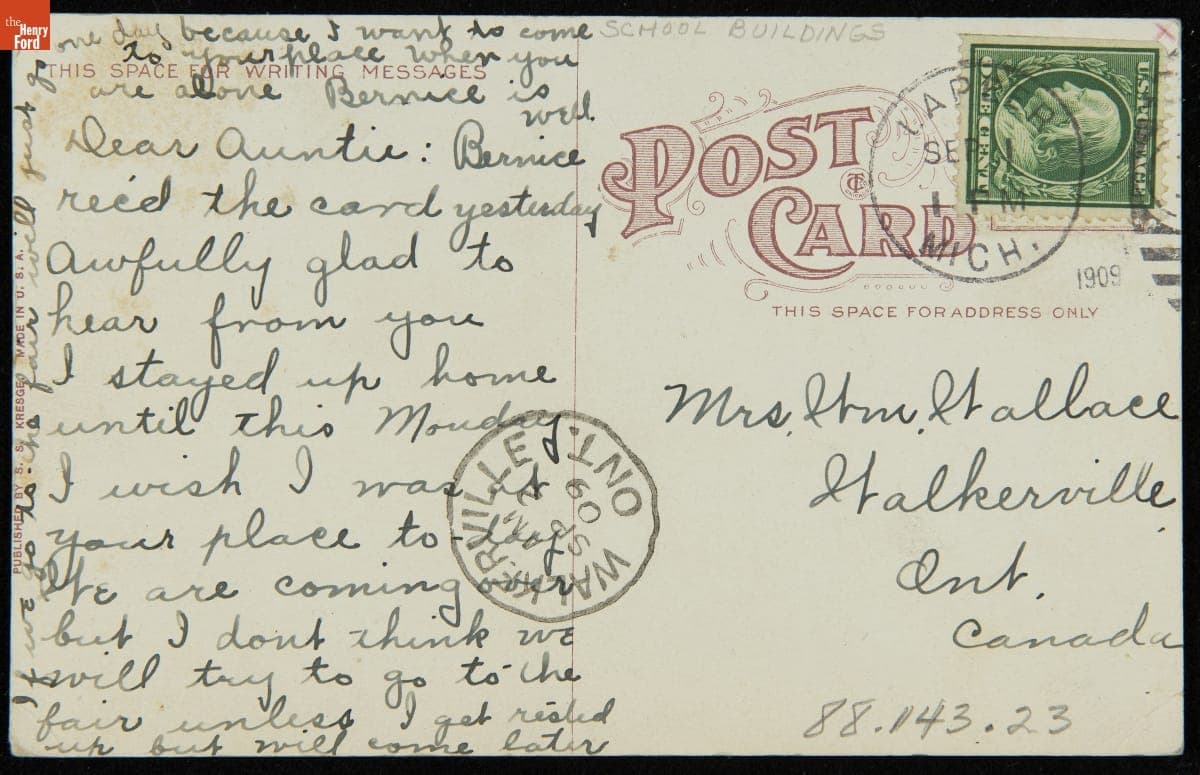 the
Henry
Ford
one day because I want to come
to your place when you
are alone Bernice is
well.
THIS SPACE FOR WRITING MESSAGES
Dear Auntie: Bernice
rec'd the card yesterday
Awfully glad to
hear from you
I stayed up home
until this Monday
I wish I was at
your place to-day
We are coming over
but I dont think we
will try to go to the
fair unless I get rested
up but will come later
If we go to the fair will just go
PUBLISHED BY S. S. KRESGE. MADE IN U. S. A.
SCHOOL BUILDINGS
x
POST
CARD
CT
LAPEER
SEP 1
1 M
MICH.
1909
U.S. POSTAGE
ONE CENT
THIS SPACE FOR ADDRESS ONLY
Mrs. Wm. Wallace
Walkerville
Ont.
Canada
WALKERVILLE ONT.
PM
SP 2
09
88.143.23